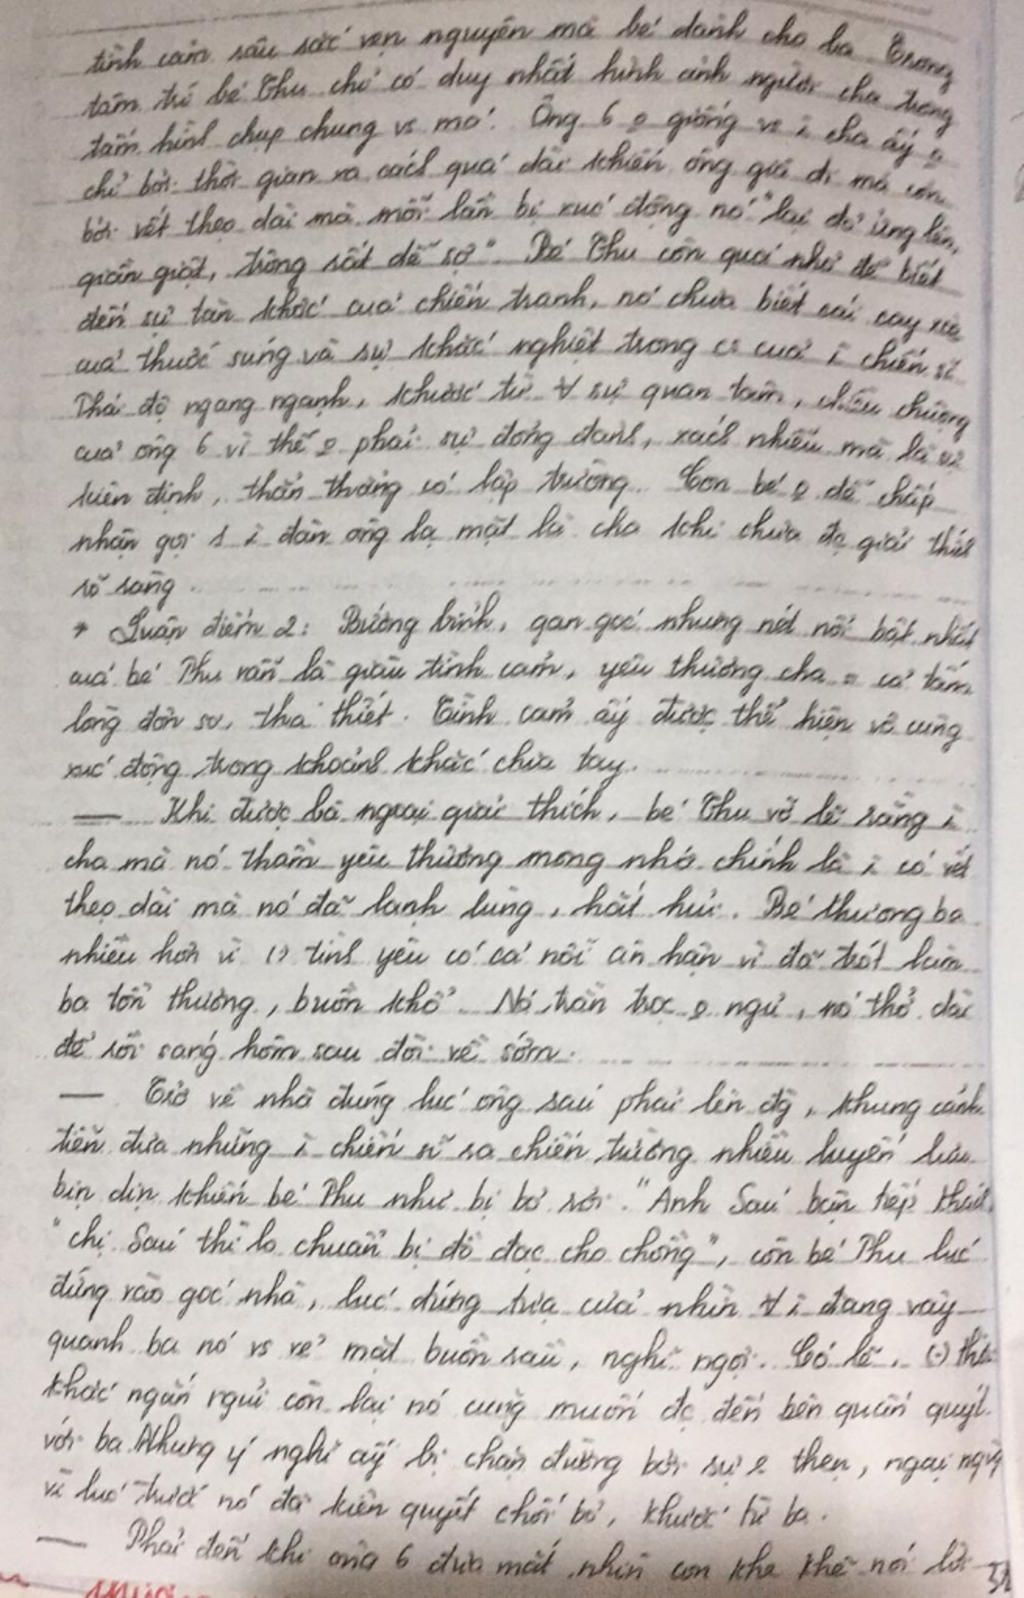 tình cảm sâu sắc vẹn nguyên mà bé dành cho ba Trong
tâm trí bé Thu chỉ có duy nhất hình ảnh người cha trong
tấm hình chụp chung vs má. Ông 6 o giống vs i cha ấy o
chỉ bởi thời gian xa cách quá dài khiến ông già đi mà còn
bởi vết thẹo dài mà mỗi lần bị xúc động nó "lại đỏ ửng lên,
giần giật, trông rất dễ sợ". Bé Thu còn quá nhỏ để biết
đến sự tàn khốc của chiến tranh, nó chưa biết cái cay xè
của thuốc súng và sự khắc nghiệt trong cs của i chiến sĩ
Thái độ ngang ngạnh, khước từ ∀ sự quan tâm, chiều chuộng
của ông 6 vì thế o phải sự đỏng đảnh, xách nhiễu mà là sự
kiên định, thẳng thắng có lập trường. Con bé o dễ chấp
nhận gọi 1 i đàn ông lạ mặt là cha khi chưa đc giải thích
rõ ràng
* Luận điểm 2: Bướng bỉnh, gan góc nhưng nét nổi bật nhất
của bé Thu vẫn là giàu tình cảm, yêu thương cha = cả tấm
lòng đơn sơ, tha thiết. Tình cảm ấy được thể hiện vô cùng
xúc động trong khoảnh khắc chia tay.
— Khi được bà ngoại giải thích, bé Thu vỡ lẽ rằng i
cha mà nó thầm yêu thương mong nhớ chính là i có vết
thẹo dài mà nó đã lạnh lùng, hất hủi. Bé thương ba
nhiều hơn vì () tình yêu có cả nỗi ân hận vì đã trót làm
ba tổn thương, buồn khổ. Nó trằn trọc o ngủ, nó thở dài
để rồi sáng hôm sau đòi về sớm.
— Trở về nhà đúng lúc ông sáu phải lên đg, khung cảnh
tiễn đưa những i chiến sĩ ra chiến trường nhiều luyến lưu
bịn dịn khiến bé Thu như bị bỏ rơi. "Anh Sáu bận tiếp khách,
"chị Sáu thì lo chuẩn bị đồ đạc cho chồng", còn bé Thu lúc
đứng vào góc nhà, lúc đứng tựa cửa nhìn ∀ i đang vây
quanh ba nó vs vẻ mặt buồn rầu, nghĩ ngợi. Có lẽ, (-) thời
khắc ngắn ngủi còn lại nó cũng muốn đc đến bên quấn quýt
với ba. Nhưng ý nghĩ ấy bị chặn đường bởi sự e thẹn, ngại ngùng
vì lúc trước nó đã kiên quyết chối bỏ, khước từ ba.
— Phải đến khi ông 6 đưa mắt nhìn con khe khẽ nói lời
31